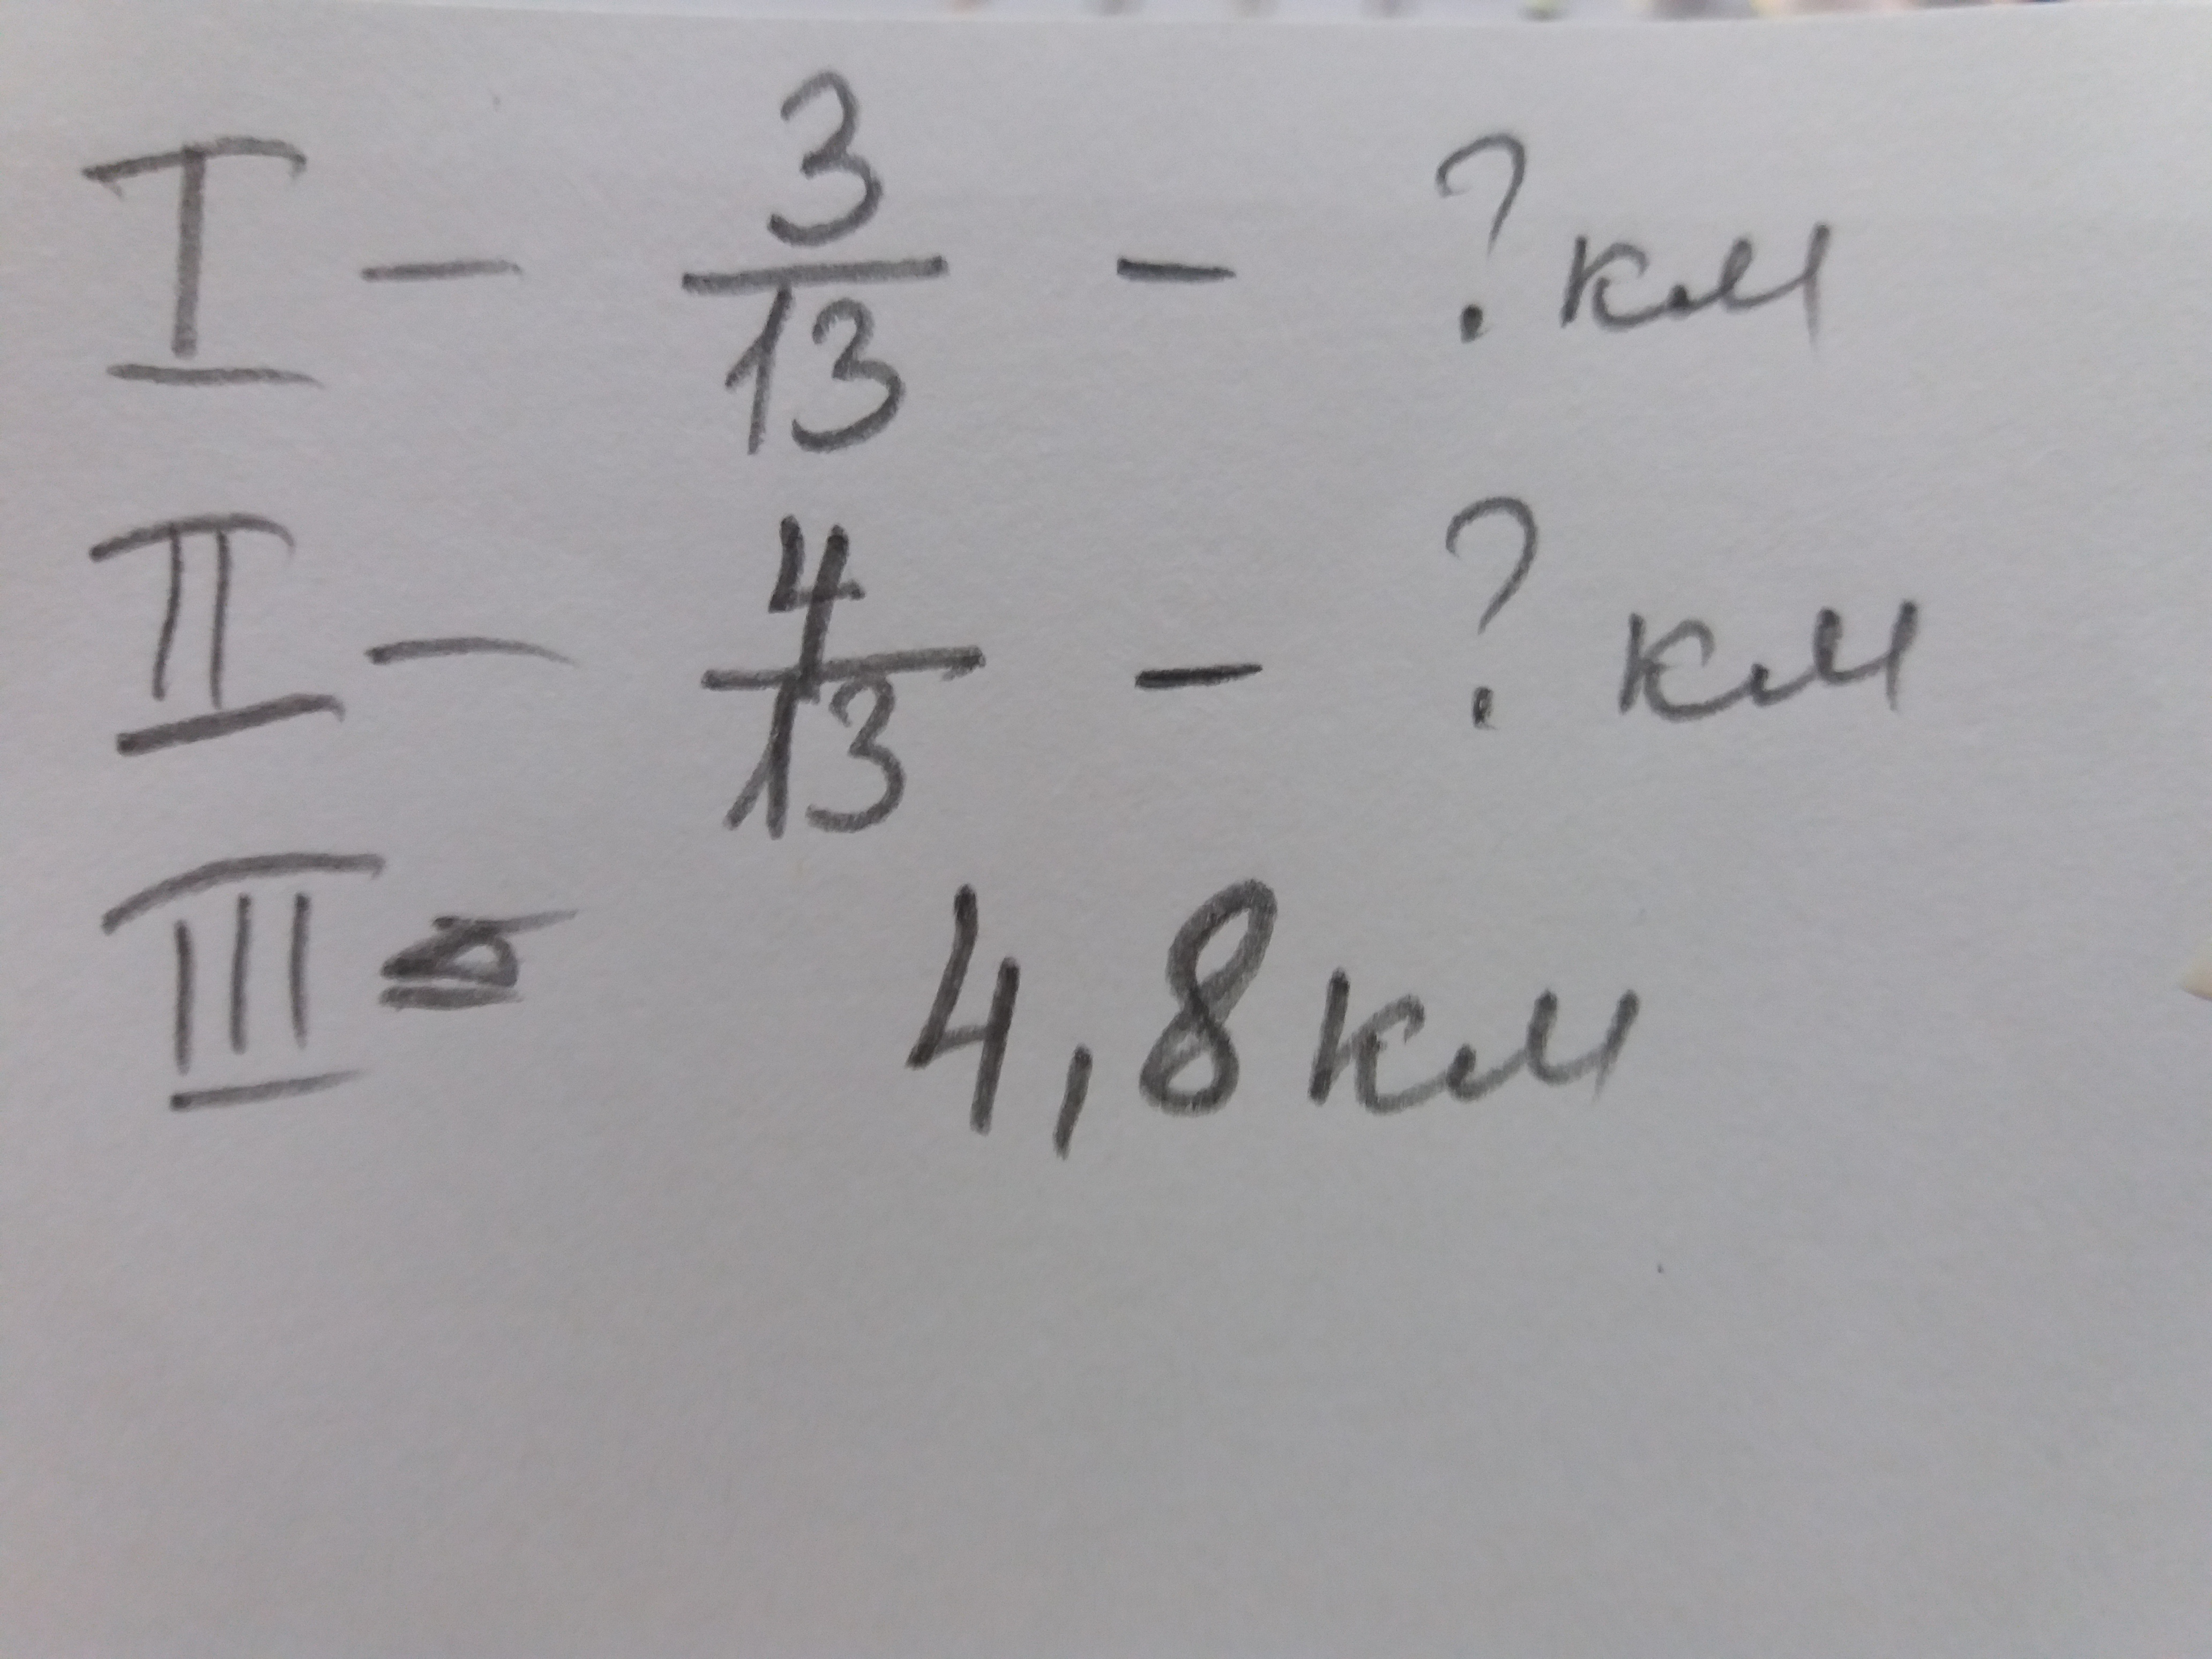 I — 3/13 - ? км
II — 4/13 - ? км
III - 4,8 км